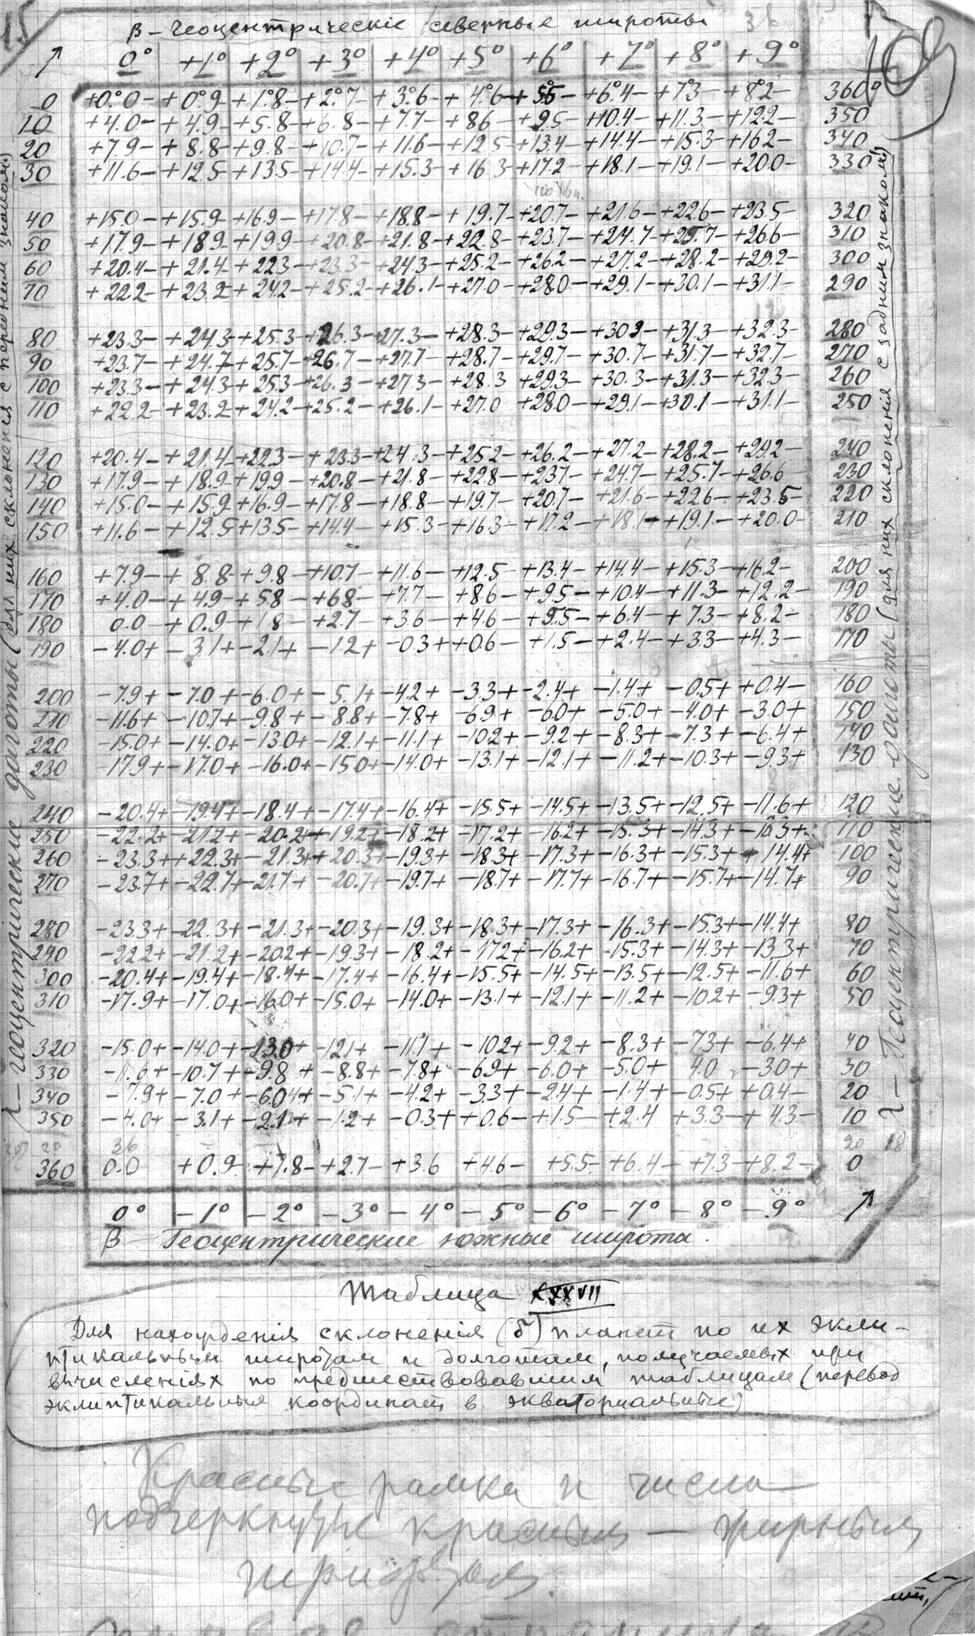 15
β – Геоцентрическіе северные широты
36
109
↗ 0° +1° +2° +3° +4° +5° +6° +7° +8° +9°
0 +0°.0– +0°.9– +1°.8– +2°.7– +3°.6– +4°.6– +5.5– +6°.4– +7.3– +8.2– 360°
10 +4.0– +4.9– +5.8– +6.8– +7.7– +8.6– +9.5– +10.4– +11.3– +12.2– 350
20 +7.9– +8.8– +9.8– +10.7– +11.6– +12.5– +13.4– +14.4– +15.3– +16.2– 340
30 +11.6– +12.5– +13.5– +14.4– +15.3– +16.3– +17.2– +18.1– +19.1– +20.0– 330
40 +15.0– +15.9– +16.9– +17.8– +18.8– +19.7– +20.7– +21.6– +22.6– +23.5– 320
50 +17.9– +18.9– +19.9– +20.8– +21.8– +22.8– +23.7– +24.7– +25.7– +26.6– 310
60 +20.4– +21.4– +22.3– +23.3– +24.3– +25.2– +26.2– +27.2– +28.2– +29.2– 300
70 +22.2– +23.2– +24.2– +25.2– +26.1– +27.0– +28.0– +29.1– +30.1– +31.1– 290
80 +23.3– +24.3– +25.3– +26.3– +27.3– +28.3– +29.3– +30.3– +31.3– +32.3– 280
90 +23.7– +24.7– +25.7– +26.7– +27.7– +28.7– +29.7– +30.7– +31.7– +32.7– 270
100 +23.3– +24.3– +25.3– +26.3– +27.3– +28.3 +29.3– +30.3– +31.3– +32.3– 260
110 +22.2– +23.2– +24.2– +25.2– +26.1– +27.0 +28.0– +29.1– +30.1– +31.1– 250
120 +20.4– +21.4– +22.3– +23.3– +24.3– +25.2– +26.2– +27.2– +28.2– +29.2– 240
130 +17.9– +18.9– +19.9– +20.8– +21.8– +22.8– +23.7– +24.7– +25.7– +26.6– 230
140 +15.0– +15.9– +16.9– +17.8– +18.8– +19.7– +20.7– +21.6– +22.6– +23.5– 220
150 +11.6– +12.5– +13.5– +14.4– +15.3– +16.3– +17.2– +18.1– +19.1– +20.0– 210
160 +7.9– +8.8– +9.8– +10.7– +11.6– +12.5– +13.4– +14.4– +15.3– +16.2– 200
170 +4.0– +4.9– +5.8– +6.8– +7.7– +8.6– +9.5– +10.4– +11.3– +12.2– 190
180 0.0– +0.9– +1.8– +2.7– +3.6– +4.6– +5.5– +6.4– +7.3– +8.2– 180
190 –4.0+ –3.1+ –2.1+ –1.2+ –0.3+ +0.6– +1.5– +2.4– +3.3– +4.3– 170
200 –7.9+ –7.0+ –6.0+ –5.1+ –4.2+ –3.3+ –2.4+ –1.4+ –0.5+ +0.4– 160
210 –11.6+ –10.7+ –9.8+ –8.8+ –7.8+ –6.9+ –6.0+ –5.0+ –4.0+ –3.0+ 150
220 –15.0+ –14.0+ –13.0+ –12.1+ –11.1+ –10.2+ –9.2+ –8.3+ –7.3+ –6.4+ 140
230 –17.9+ –17.0+ –16.0+ –15.0+ –14.0+ –13.1+ –12.1+ –11.2+ –10.3+ –9.3+ 130
240 –20.4+ –19.4+ –18.4+ –17.4+ –16.4+ –15.5+ –14.5+ –13.5+ –12.5+ –11.6+ 120
250 –22.2+ –21.2+ –20.2+ –19.2+ –18.2+ –17.2+ –16.2+ –15.3+ –14.3+ –13.3+ 110
260 –23.3+ –22.3+ –21.3+ –20.3+ –19.3+ –18.3+ –17.3+ –16.3+ –15.3+ –14.4+ 100
270 –23.7+ –22.7+ –21.7+ –20.7+ –19.7+ –18.7+ –17.7+ –16.7+ –15.7+ –14.7+ 90
280 –23.3+ –22.3+ –21.3+ –20.3+ –19.3+ –18.3+ –17.3+ –16.3+ –15.3+ –14.4+ 80
290 –22.2+ –21.2+ –20.2+ –19.3+ –18.2+ –17.2+ –16.2+ –15.3+ –14.3+ –13.3+ 70
300 –20.4+ –19.4+ –18.4+ –17.4+ –16.4+ –15.5+ –14.5+ –13.5+ –12.5+ –11.6+ 60
310 –17.9+ –17.0+ –16.0+ –15.0+ –14.0+ –13.1+ –12.1+ –11.2+ –10.2+ –9.3+ 50
320 –15.0+ –14.0+ –13.0+ –12.1+ –11.1+ –10.2+ –9.2+ –8.3+ –7.3+ –6.4+ 40
330 –11.6+ –10.7+ –9.8+ –8.8+ –7.8+ –6.9+ –6.0+ –5.0+ 4.0 –3.0+ 30
340 –7.9+ –7.0+ –6.0+ –5.1+ –4.2+ –3.3+ –2.4+ –1.4+ –0.5+ +0.4– 20
350 –4.0+ –3.1+ –2.1+ –1.2+ –0.3+ +0.6– +1.5– +2.4 +3.3– +4.3– 10
360 0.0 +0.9– +1.8– +2.7– +3.6 +4.6– +5.5– +6.4– +7.3– +8.2– 0
0° –1° –2° –3° –4° –5° –6° –7° –8° –9° ↗
β – Геоцентрические южные широта.
λ – Геоцентрические долготы (для них склоненія с передним знаком)
λ – Геоцентрические долготы (для них склоненія с задним знаком)
Таблица XXXVII
Для нахожденія склоненія (δ) планет по их экли-
птикальным широтам и долготам, получаемых при
вычисленіях по предшествовавшим таблицам (перевод
эклиптикальныя координат в экваториальные)
Красные рамка и числа
подчеркнутые красным – жирным
шрифтом.